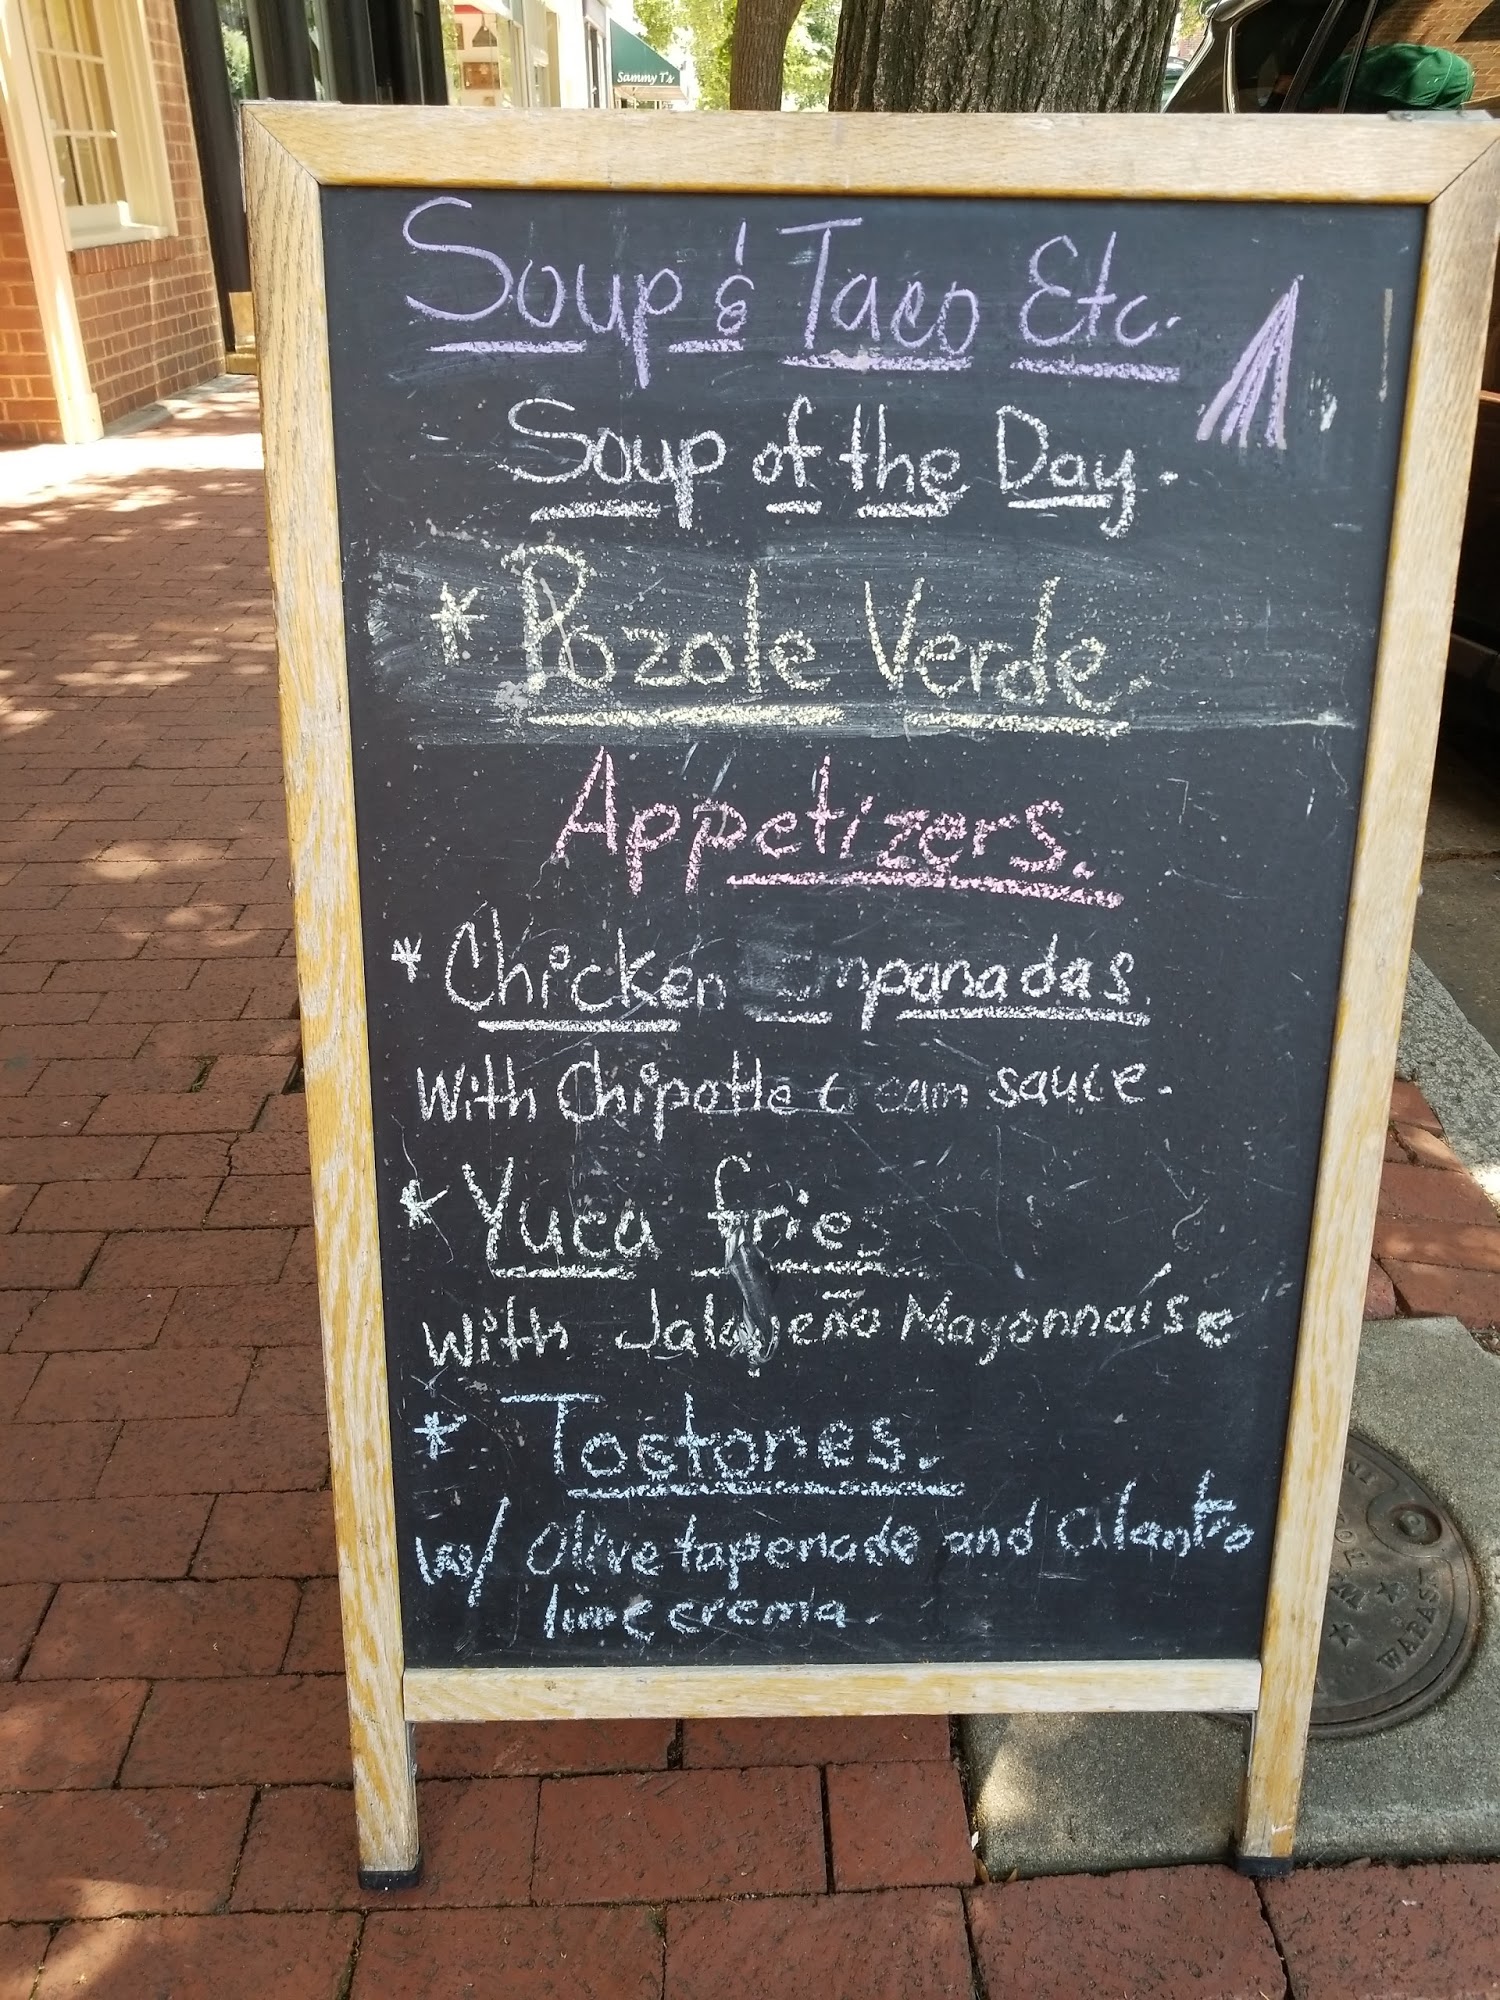 Sammy T's
Soup & Taco Etc.
Soup of the Day.
* Pozole Verde.
Appetizers.
* Chicken Empanadas
With Chipotle Cream sauce.
* Yuca fries
with Jalapeño Mayonnaise
* Tostones.
w/ Olive tapenade and Cilantro
lime crema.
WABASH